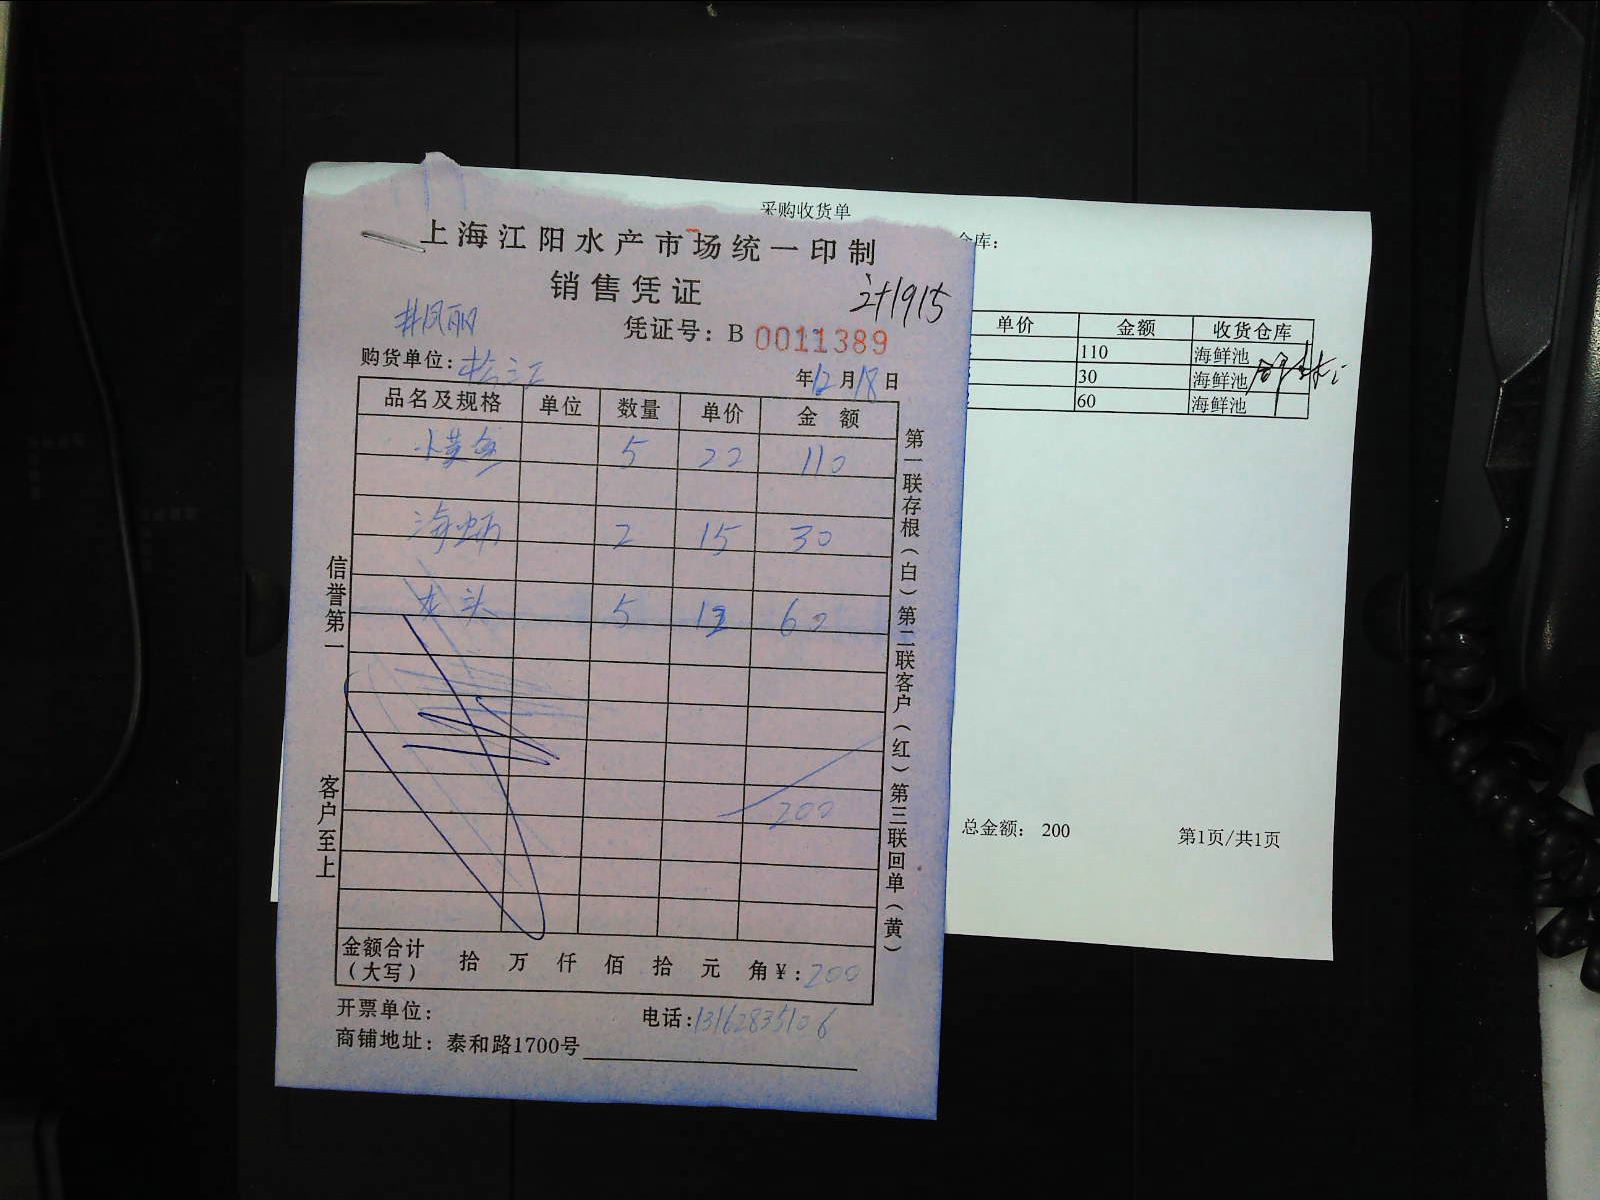 采购收货单
仓库：
单价 金额 收货仓库
110 海鲜池
30 海鲜池
60 海鲜池
总金额： 200
第1页/共1页
上海江阳水产市场统一印制
销售凭证
计1915
井凤丽
凭证号：B 0011389
购货单位：松江
年12月18日
品名及规格 单位 数量 单价 金额
小黄鱼 5 22 110
海蛎 2 15 30
龙头 5 12 60
200
金额合计（大写） 拾 万 仟 佰 拾 元 角 ¥：200
开票单位：
电话：13162835106
商铺地址：泰和路1700号
信誉第一
客户至上
第一联存根（白）第二联客户（红）第三联回单（黄）